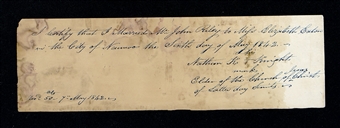 I certify that I Married Mr John Riley to Miss Elizabeth
in the City of Nauvoo the Sixth day of May 1842 —
Nathan K. Knight
Elder of the Church of Jesus Christ
of Latter Day Saints
7th May 1842